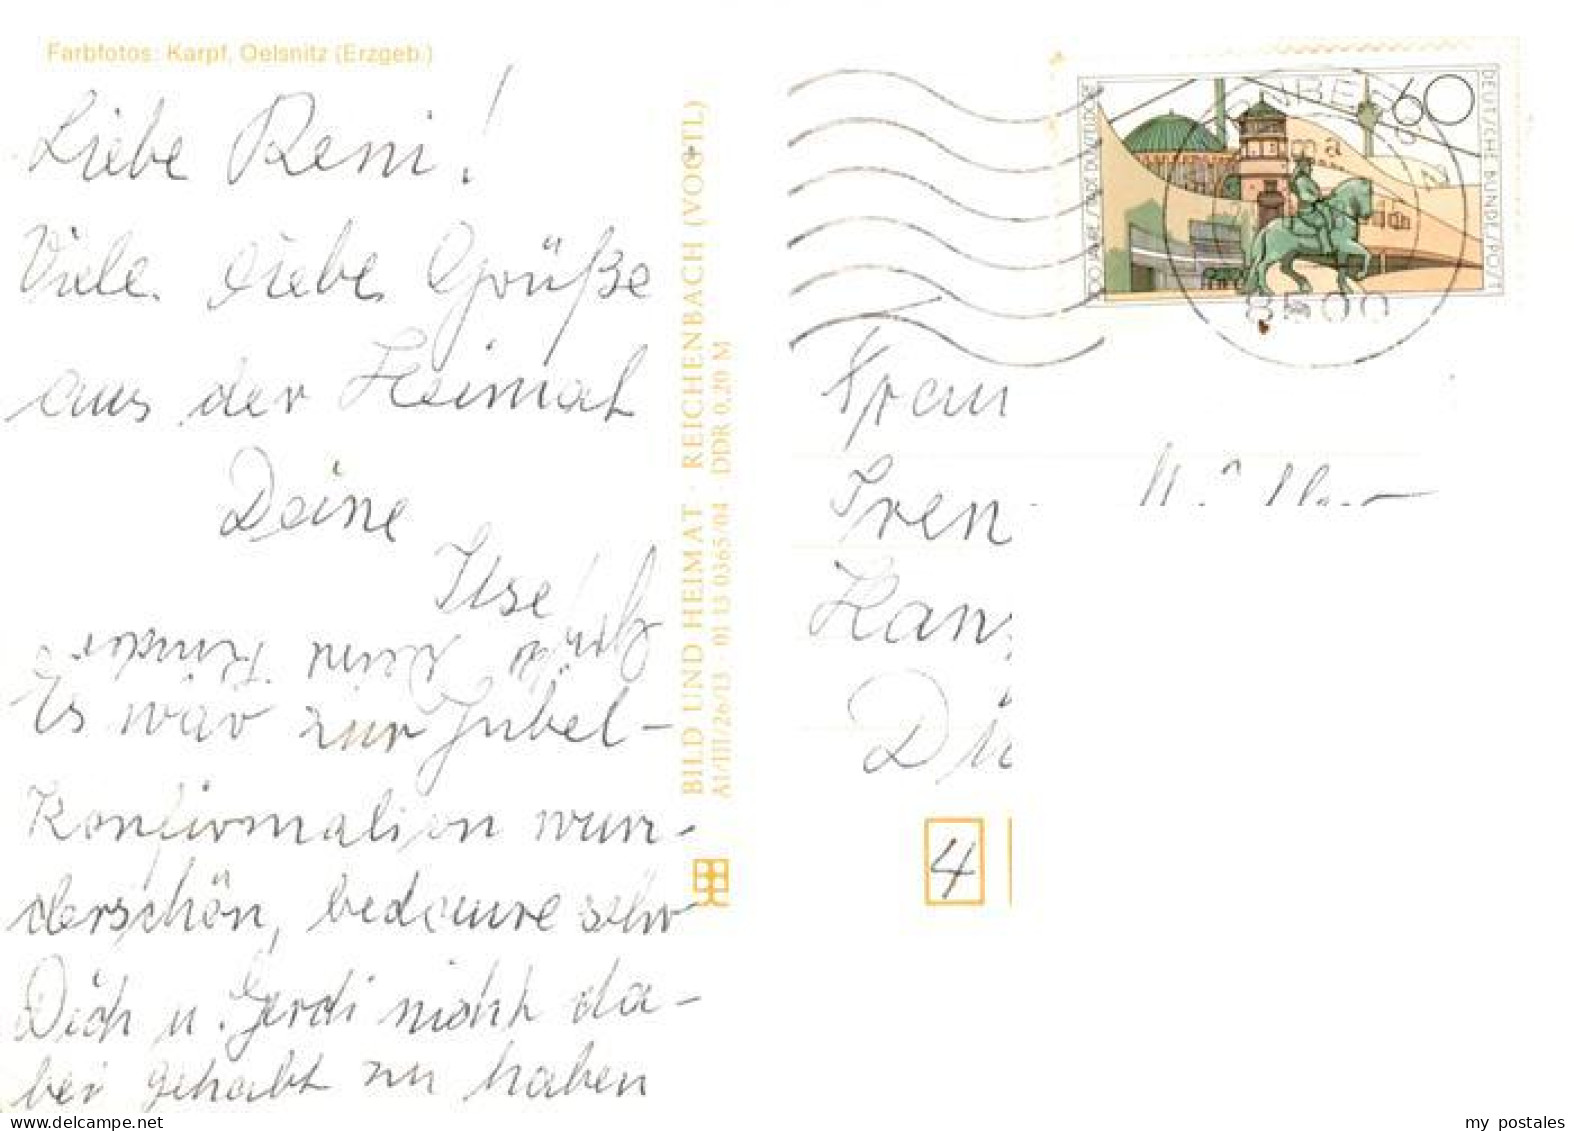 Farbfotos: Karpf, Oelsnitz (Erzgeb.)
Liebe Reni!
Viele liebe Grüße
aus der Heimat
Deine
Ilse
Es war zur Jubel-
Konfirmation wun-
derschön, bedaure sehr
Dich u. Gerdi nicht da-
bei gehabt zu haben
BILD UND HEIMAT · REICHENBACH (VOGTL)
A1/III/26/13 · 01 13 0365/04 · DDR 0,20 M
60
DEUTSCHE BUNDESPOST
700 JAHRE STADT DÜSSELDORF
8500
Frau
Iren
Han
Dü
4
my postales